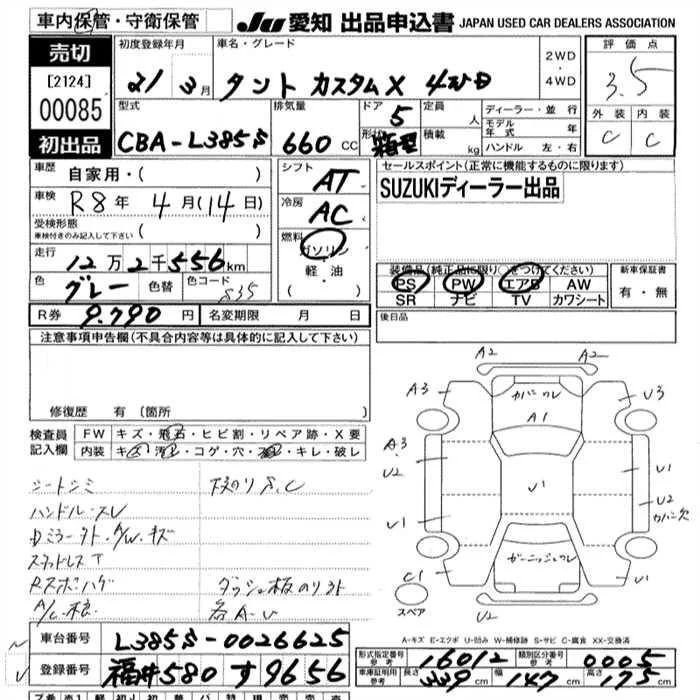 車内保管・守衛保管
JU 愛知 出品申込書 JAPAN USED CAR DEALERS ASSOCIATION
売切
[2124]
00085
初出品
初度登録年月
21 3月
車名・グレード
タント カスタムX 4WD
2WD
・
4WD
評価点
3.5
外装 内装
C C
型式
CBA-L385S
排気量
660 CC
ドア
5
形状
定員
人
積載
kg
ディーラー・並行
モデル年式 年
ハンドル 左・右
車歴
自家用・( )
車検
R8年 4月(14日)
受検形態
車検付きのみ記入して下さい
( )
走行
12万2千556km
色
グレー
色替
色コード
S35
R券
9.790円
名変期限 月 日
シフト
AT
冷房
AC
燃料
ガソリン
・
軽・油
( ・ )
セールスポイント(正常に機能するものに限ります)
SUZUKIディーラー出品
装備品(純正品に限り○をつけてください)
PS PW エアB AW
SR ナビ TV カワシート
新車保証書
有・無
後日品
注意事項申告欄(不具合内容等は具体的に記入して下さい)
修復歴 有(箇所
検査員記入欄
FW キズ・飛石・ヒビ割・リペア跡・X要
内装 キズ・汚・コゲ・穴・ ・キレ・破レ
シートシミ
ハンドルスレ
スタッドレスT
ダッシュ板のリヨト
各A-U
A2 A2
A3 カバーワレ U3
A1
A3 U2
U1 U1 U1
U2
ガーニッシュワレ
C1 U1
スペア
U2
A-キズ E-エクボ U-凹み W-補修跡 S-サビ C-腐食 XX-交換済
車台番号
L385S-0026625
登録番号
福井580 す9656
形式指定番号
参考
16012
類別区分番号
参考
0005
車庫証明用
参考
長さ
339cm
幅
147cm
高さ
175cm